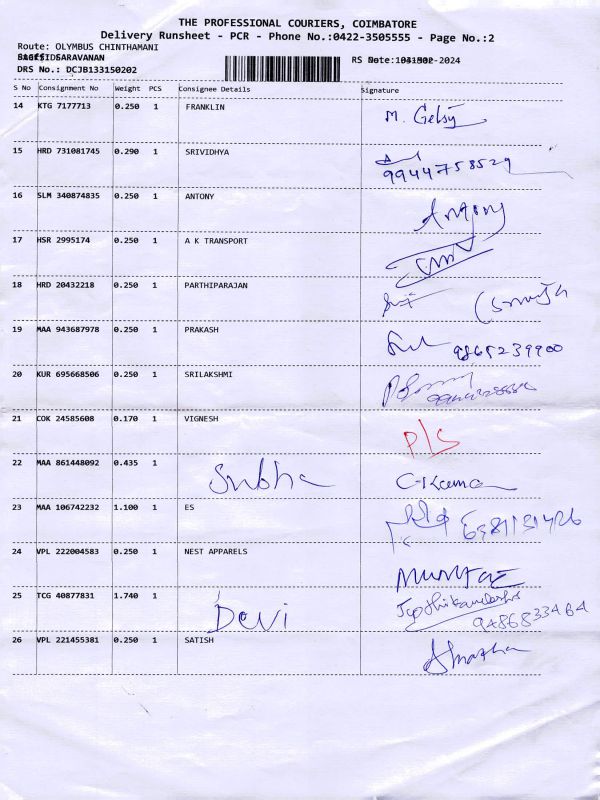 THE PROFESSIONAL COURIERS, COIMBATORE
Delivery Runsheet - PCR - Phone No.:0422-3505555 - Page No.:2
Route: OLYMBUS CHINTHAMANI
SARAVANAN
RS
-2024
DRS No.: DCJB133150202
S No Consignment No Weight PCS Consignee Details Signature
14 KTG 7177713 0.250 1 FRANKLIN M. Gelsy
15 HRD 731081745 0.290 1 SRIVIDHYA
9944758529
16 SLM 340874835 0.250 1 ANTONY Antony
17 HSR 2995174 0.250 1 A K TRANSPORT
18 HRD 20432218 0.250 1 PARTHIPARAJAN
19 MAA 943687978 0.250 1 PRAKASH 9865239900
20 KUR 695668506 0.250 1 SRILAKSHMI
21 COK 24585608 0.170 1 VIGNESH P/S
22 MAA 861448092 0.435 1 Subha
23 MAA 106742232 1.100 1 ES
24 VPL 222004583 0.250 1 NEST APPARELS Mumtaz
25 TCG 40877831 1.740 1 Devi
26 VPL 221455381 0.250 1 SATISH